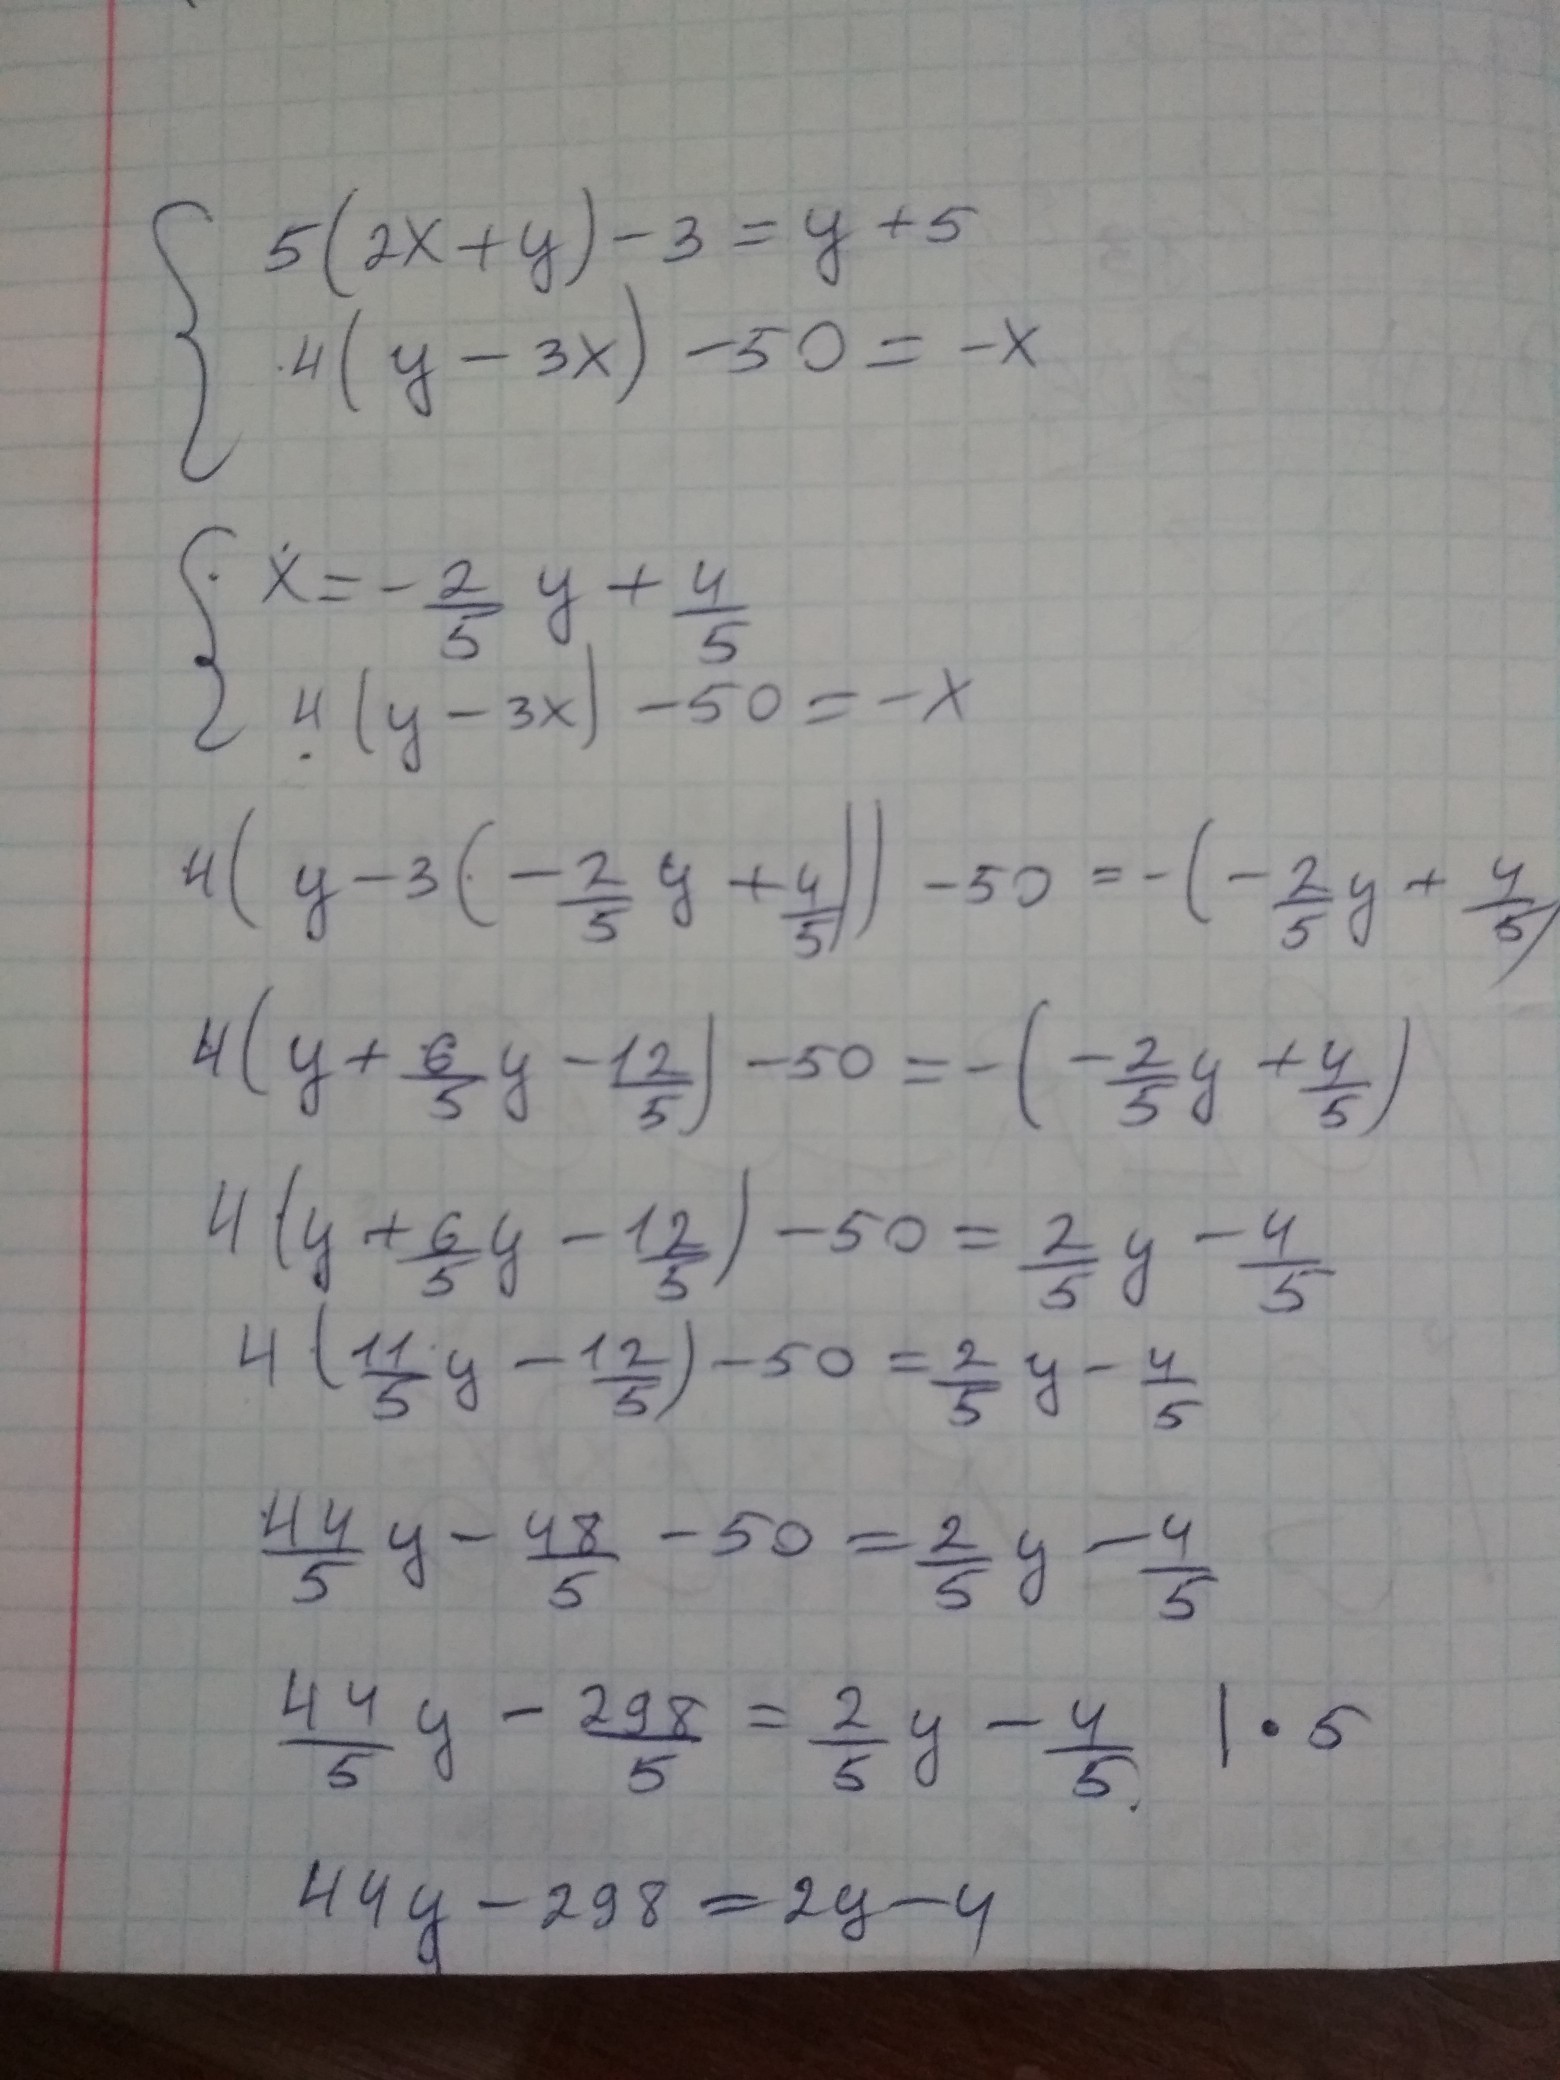 5(2x+y)-3=y+5
4(y-3x)-50=-x
x=-2/5 y+4/5
4(y-3x)-50=-x
4(y-3(-2/5 y+4/5))-50=-(-2/5 y+4/5)
4(y+6/5 y-12/5)-50=-(-2/5 y+4/5)
4(y+6/5 y-12/5)-50=2/5 y-4/5
4(11/5 y-12/5)-50=2/5 y-4/5
44/5 y-48/5-50=2/5 y-4/5
44/5 y-298/5=2/5 y-4/5 |•5
44y-298=2y-4